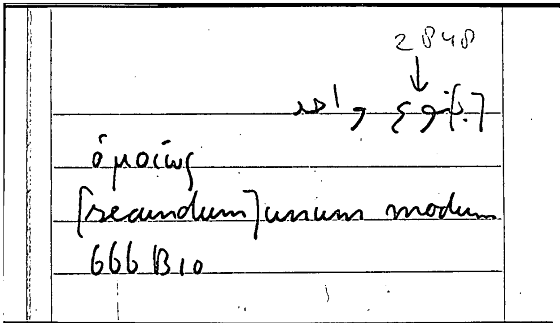 2848
[ب]نوع واحد
ὁμοίως
[secundum] unum modum
666 B10